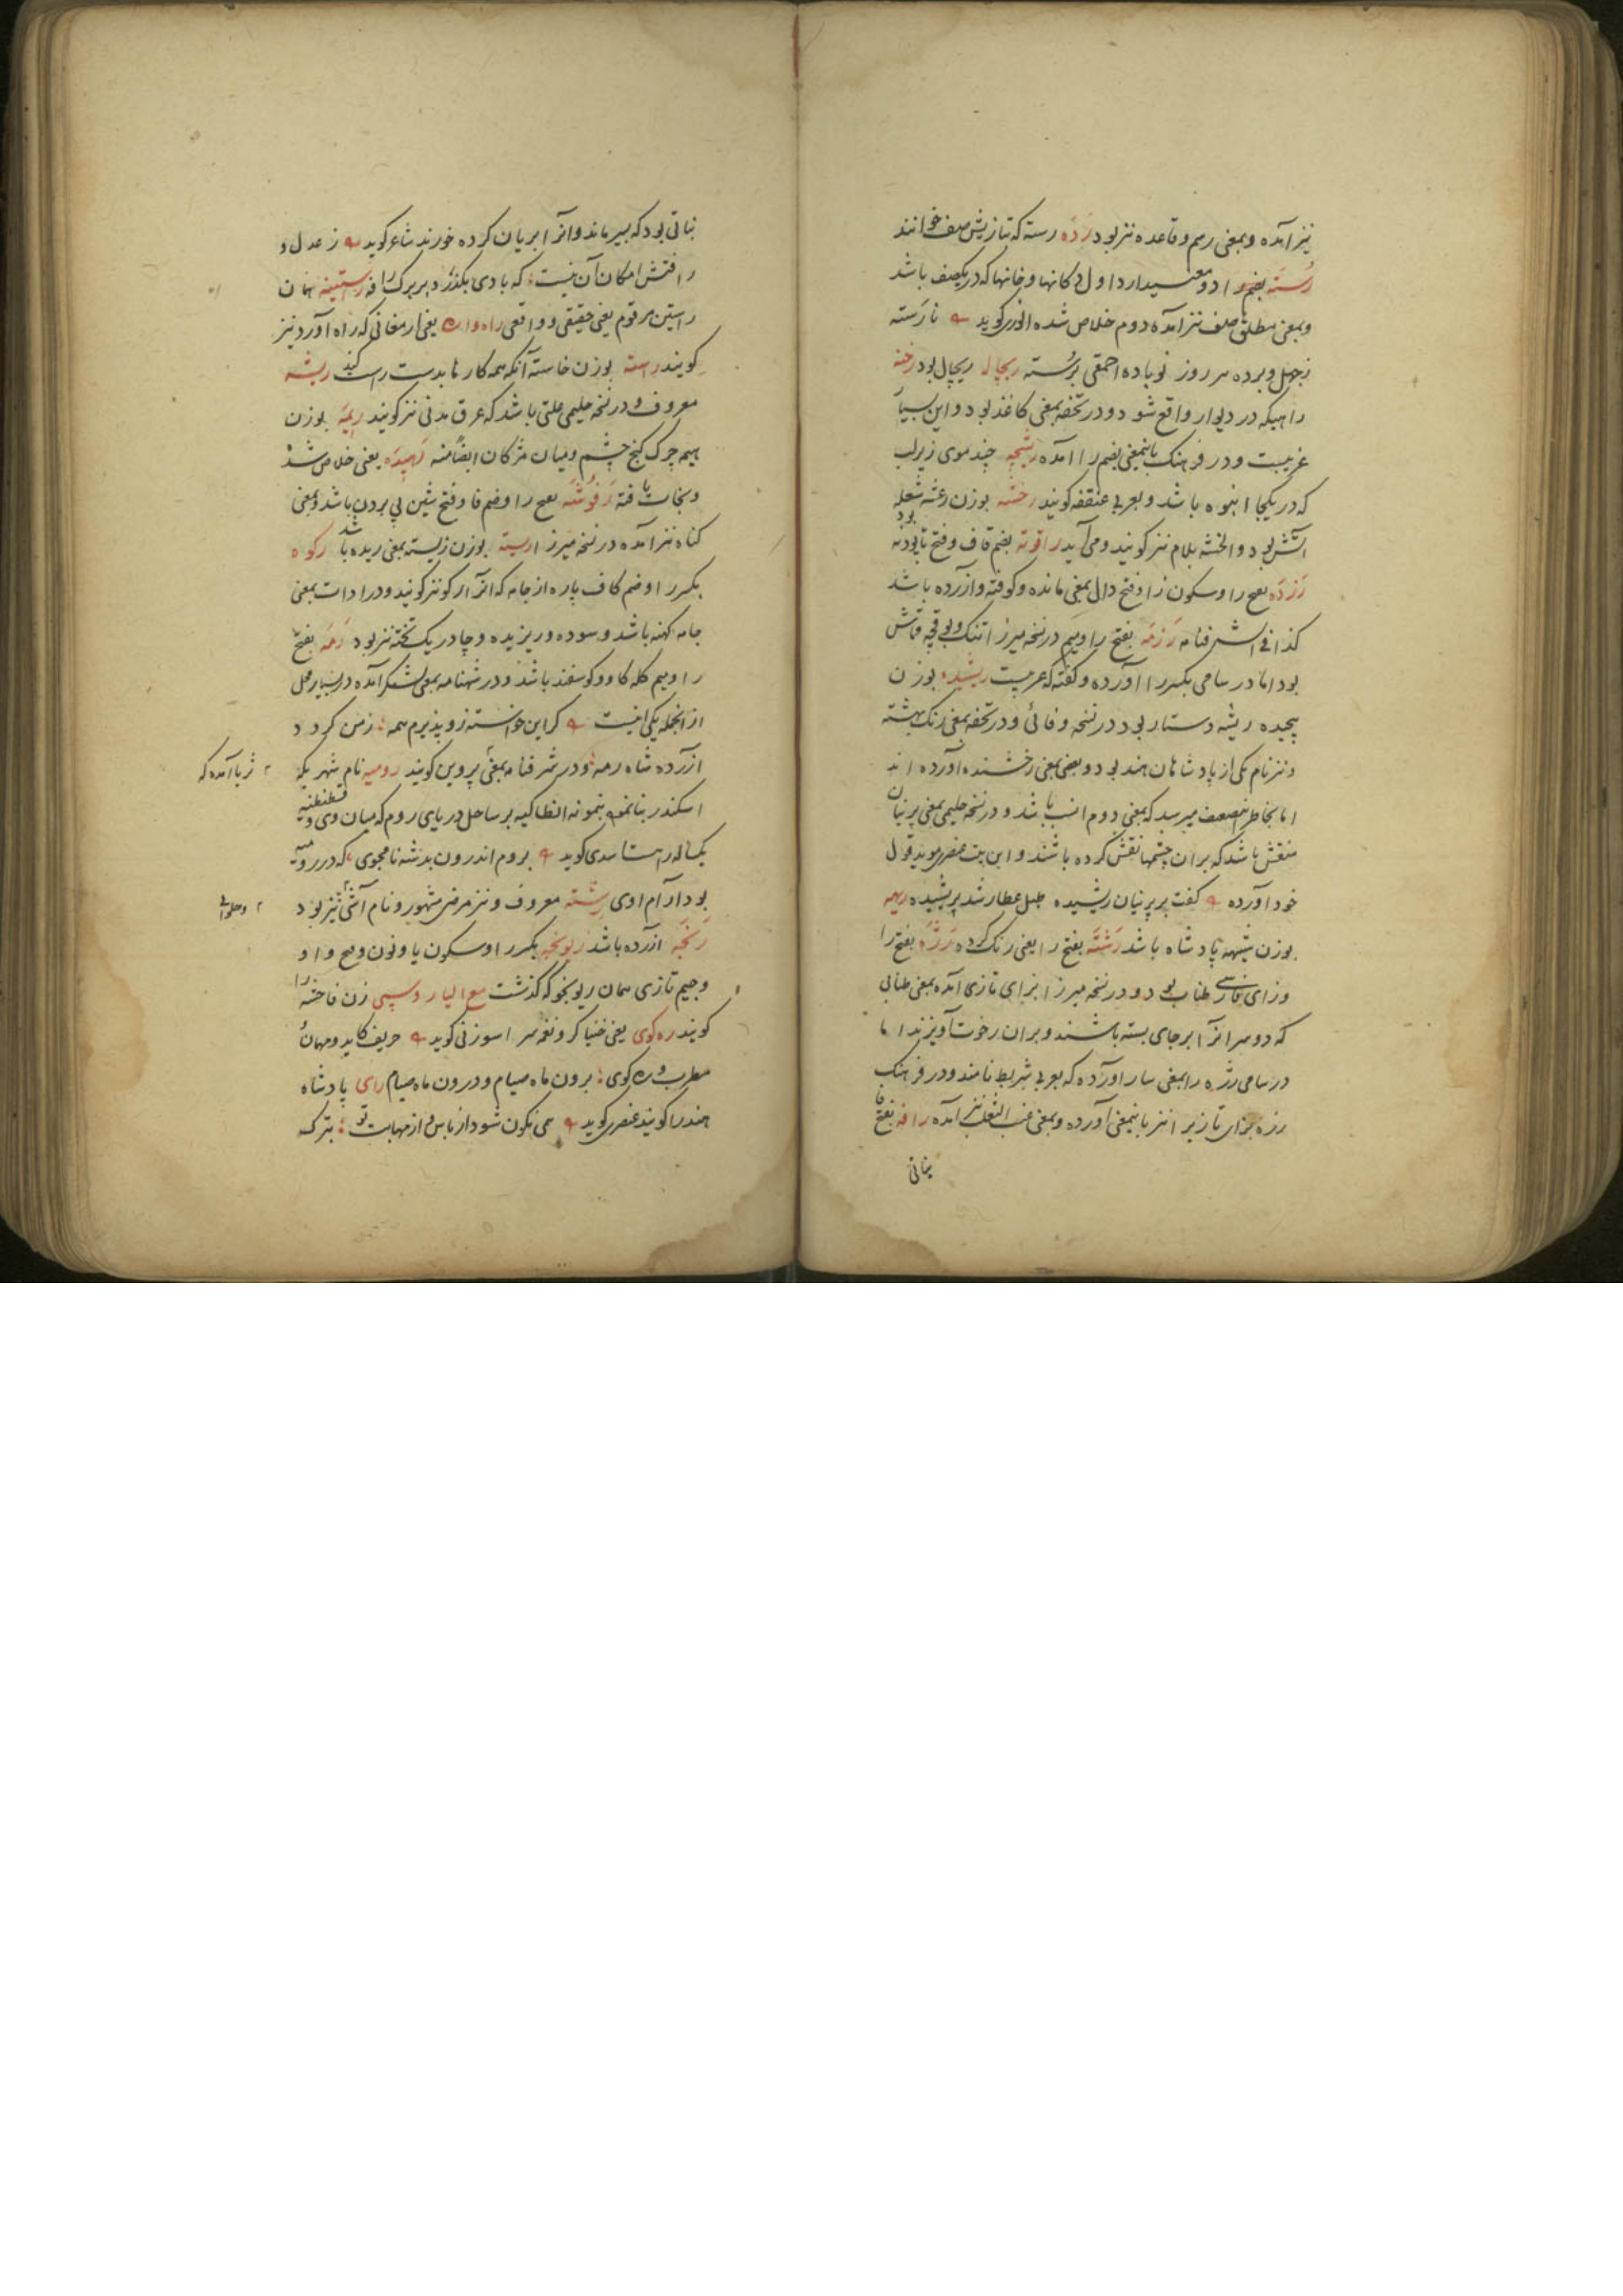 نیز آمده و بمعنی رسم و قاعده نیز بود رَدَه رسته که بتازیش صف خوانند
رُسته بضم را دو معنی دارد اول دکانها و خانها که در یکصف باشد
و بمعنی مطلق صف نیز آمده دوم خلاص شده انوری کوید نارسته
ز جهل و برده هر روز نوباده احمقی برُسته ریچال ریچال بود رخنه
راهیکه در دیوار واقع شود و در تحفه بمعنی کاغذ بود و این بسیار
غریبست و در فرهنک باینمعنی بضم را آمده چند موی زیر لب
که در یکجا انبوه باشد و بعربی عنفقه کویند رخشه بوزن شعله
آتش بود و الخشه بلام نیز کویند و می آید راقوته بضم قاف و فتح تا پودنه
رَزدَه بفتح را و سکون زا و فتح دال بمعنی مانده و کوفته و آزرده باشد
کذا فی الشرفنامه رَزمَه بفتح را و میم در نسخه میرزا تنک و بوقچه قماش
بود اما در سامی بکسر را آورده و کفته که عربیست رشیده بوزن
پیچیده ریشه دستار بود در نسخه وفائی و در تحفه بمعنی رنک بهشته
و نیز نام یکی از پادشاهان هند بود و بعضی بمعنی رخشنده آورده اند
اما بخاطر اضعف میرسد که بمعنی دوم انسب باشد و در نسخه حلیمی بمعنی پرنیان
منقش باشد که بران چشمها نقش کرده باشند و این بیت عنصری موید قول
خود آورده کفت بر پرنیان ریشیده طبل عطار شد پریشیده
بوزن شیهه پادشاه باشد رَشتَه بفتح را یعنی رنک کرده رَژَه بفتح را
و زای فارسی طناب بود و در نسخه میرزا بزای تازی آمده بمعنی طنابی
که دو سر آنرا بر جای بسته باشند و بران رخوت آویزند اما
در سامی رژه را بمعنی سار آورده که بعربی شریط نامند و در فرهنک
رزه بزای تازی را نیز باینمعنی آورده و بمعنی عنب الثعلب نیز آمده رافه بفتح فا
نباتی
نباتی بود که بسیر ماند و آنرا بریان کرده خورند شاعر کوید ز عدل و
رافتش امکان آن نیست که بادی بکذرد بر برک رافه راستینه همان
راستین مرقوم یعنی حقیقی و واقعی راه واره یعنی ارمغانی که راه آورد نیز
کویند راسته بوزن خاسته آنکه همه کارها بدست راست کند ریشه
معروف و در نسخه حلیمی علتی باشد که عرق مدنی نیز کویند ریمَه بوزن
هیمه چرک کنج چشم و میان مژکان ایضاً منه رَهیدَه یعنی خلاص شده
و نجات یافته رَفوشَه بفتح را و ضم فا و فتح شین پی بردن باشد و بمعنی
کناه نیز آمده در نسخه میرزا ریسته بوزن زیسته بمعنی ریده باشد رکوه
بکسر را و ضم کاف پاره از جامه که آنرا رکو نیز کویند و در ادات بمعنی
جامه کهنه باشد و سوده و ریزیده و چادر یک تخته نیز بود رَمَه بفتح
را و میم کله کاو و کوسفند باشد و در شهنامه بمعنی لشکر آمده در بسیار محل
از انجمله یکی اینست کر این خواسته زو پذیرم همه ز من کردد
آزرده شاه رمه و در شرفنامه بمعنی پروین کویند رومیه نام شهریکه
ثریا آمده که
اسکندر بنا نمود بنمونه انطاکیه بر ساحل دریای روم که میان وی و قسطنطنیه
یکساله راهست اسدی کوید بروم اندرون بد شه نامجوی که در رومیه
بود آرام اوی رِشته معروف و نیز مرضی مشهور و نام آشی نیز بود
و حلوائی
رَنجَه آزرده باشد ریونجه بکسر را و سکون یا و نون و فتح واو
و جیم تازی همان ریونجو که کذشت مع الیا روسپی زن فاحشه را
کویند ره کوی یعنی خنیاکر و نغمه سرا سوزنی کوید حریف کاید و مهمان
مطرب و ره کوی برون ماه صیام و درون ماه صیام رای پادشاه
هند را کویند عنصری کوید همی نکون شود از باس و از مهابت تو بترک